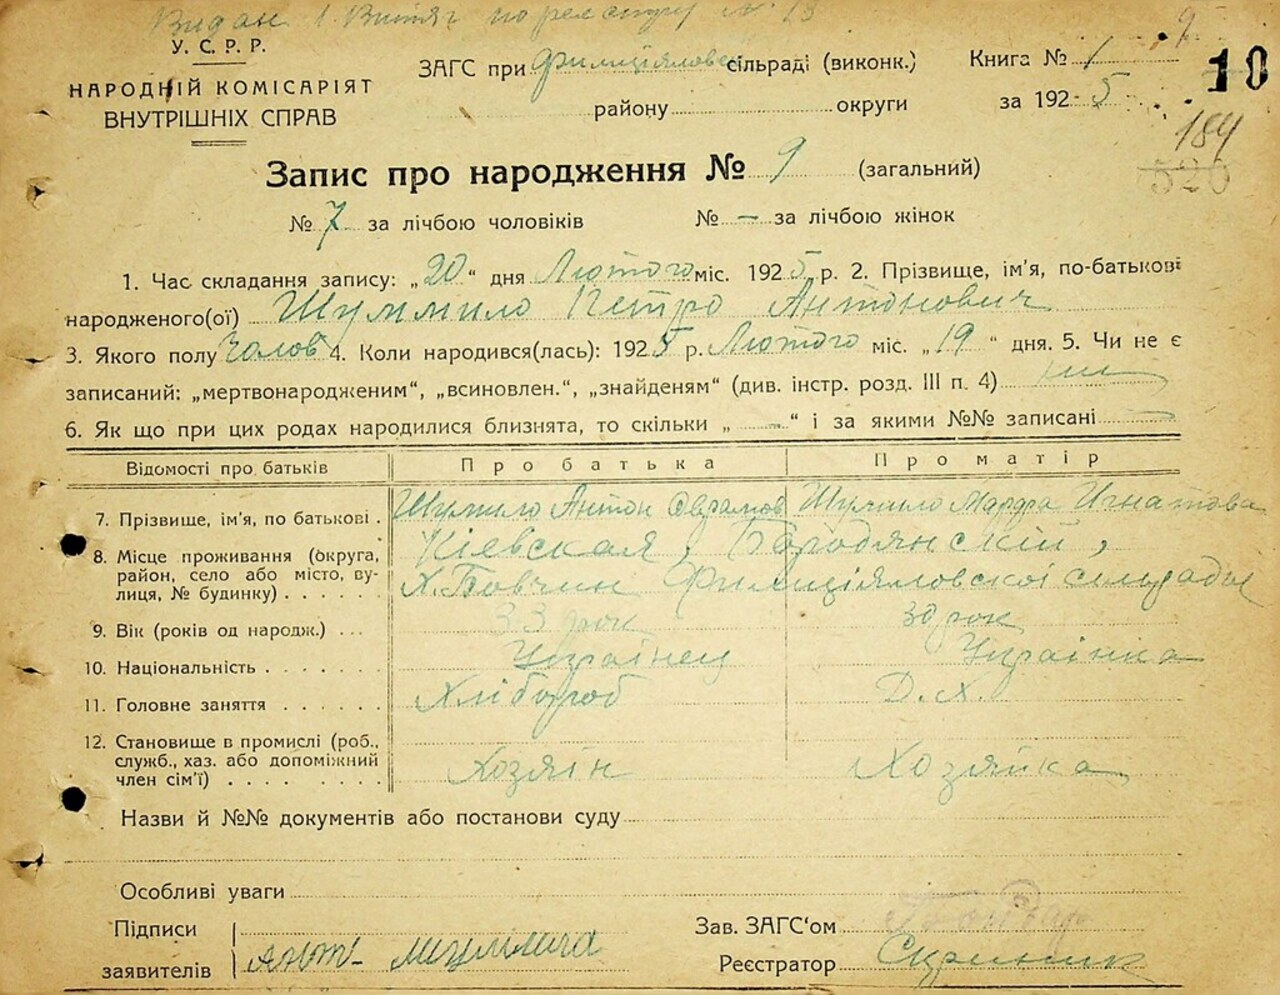 Видан 1. Витяг по реєстру № 13
У.С.Р.Р.
НАРОДНІЙ КОМІСАРІЯТ
ВНУТРІШНІХ СПРАВ
ЗАГС при Филиціяловс сільраді (виконк.)
району округи
Книга № 1
за 192 5
9
10
184
520
Запис про народження № 9 (загальний)
№ 7 за лічбою чоловіків № — за лічбою жінок
1. Час складання запису: „20“ дня Лютого міс. 1925 р. 2. Прізвище, ім'я, по-батькові
народженого(ої) Шуммило Петро Антонович
3. Якого полу Чолов 4. Коли народився(лась): 1925 р. Лютого міс. „19“ дня. 5. Чи не є
записаний: „мертвонародженим“, „всиновлен.“, „знайденям“ (див. інстр. розд. III п. 4)
6. Як що при цих родах народилися близнята, то скільки „—“ і за якими №№ записані —
Відомості про батьків Про батька Про матір
7. Прізвище, ім'я, по батькові . Шумило Антон Оврамов Шумило Марфа Игнатова
8. Місце проживання (округа, район, село або місто, вулиця, № будинку) . . . . . Кіевская, Бародянскій,
Х. Бовчин Филиціяловскоі сильрады
9. Вік (років од народж.) . . . 33 рок 30 рок
10. Національність . . . . . . Українец Українка
11. Головне заняття . . . . . . Хлібороб Д.Х.
12. Становище в промислі (роб., служб., хаз. або допоміжний член сім'ї) . . . . . . . . Хозяін Хозяйка
Назви й №№ документів або постанови суду
Особливі уваги
Підписи
заявителів Ант-
Зав. ЗАГС'ом
Реєстратор Скрипник